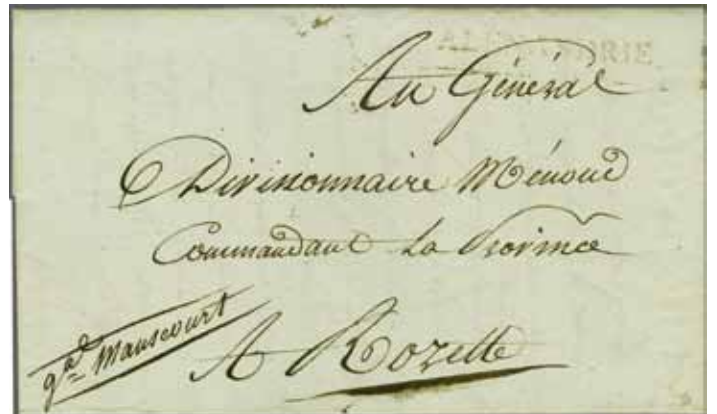 ALEXANDRIE
Au Général
Divisionnaire Menoud
Commandant la Province
gal Manscourt
A Rozette